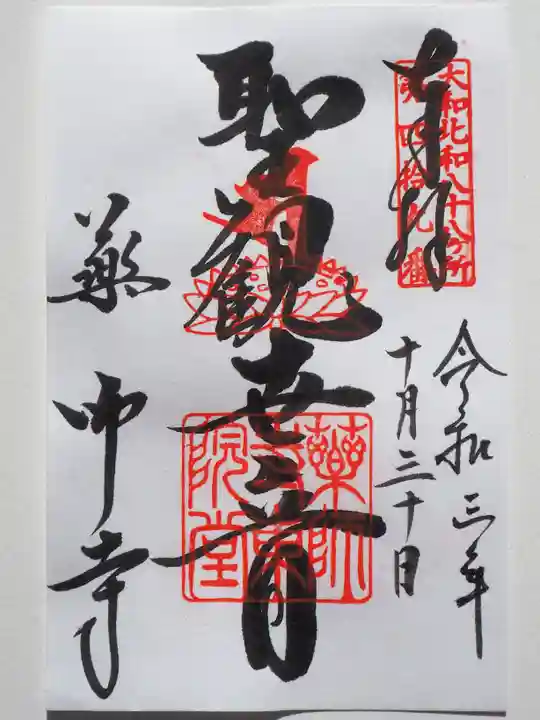 奉拝
大和北和八十八ヶ所
第四拾九番
令和三年
十月三十日
聖観世音
藥師
寺東
院堂
薬師寺